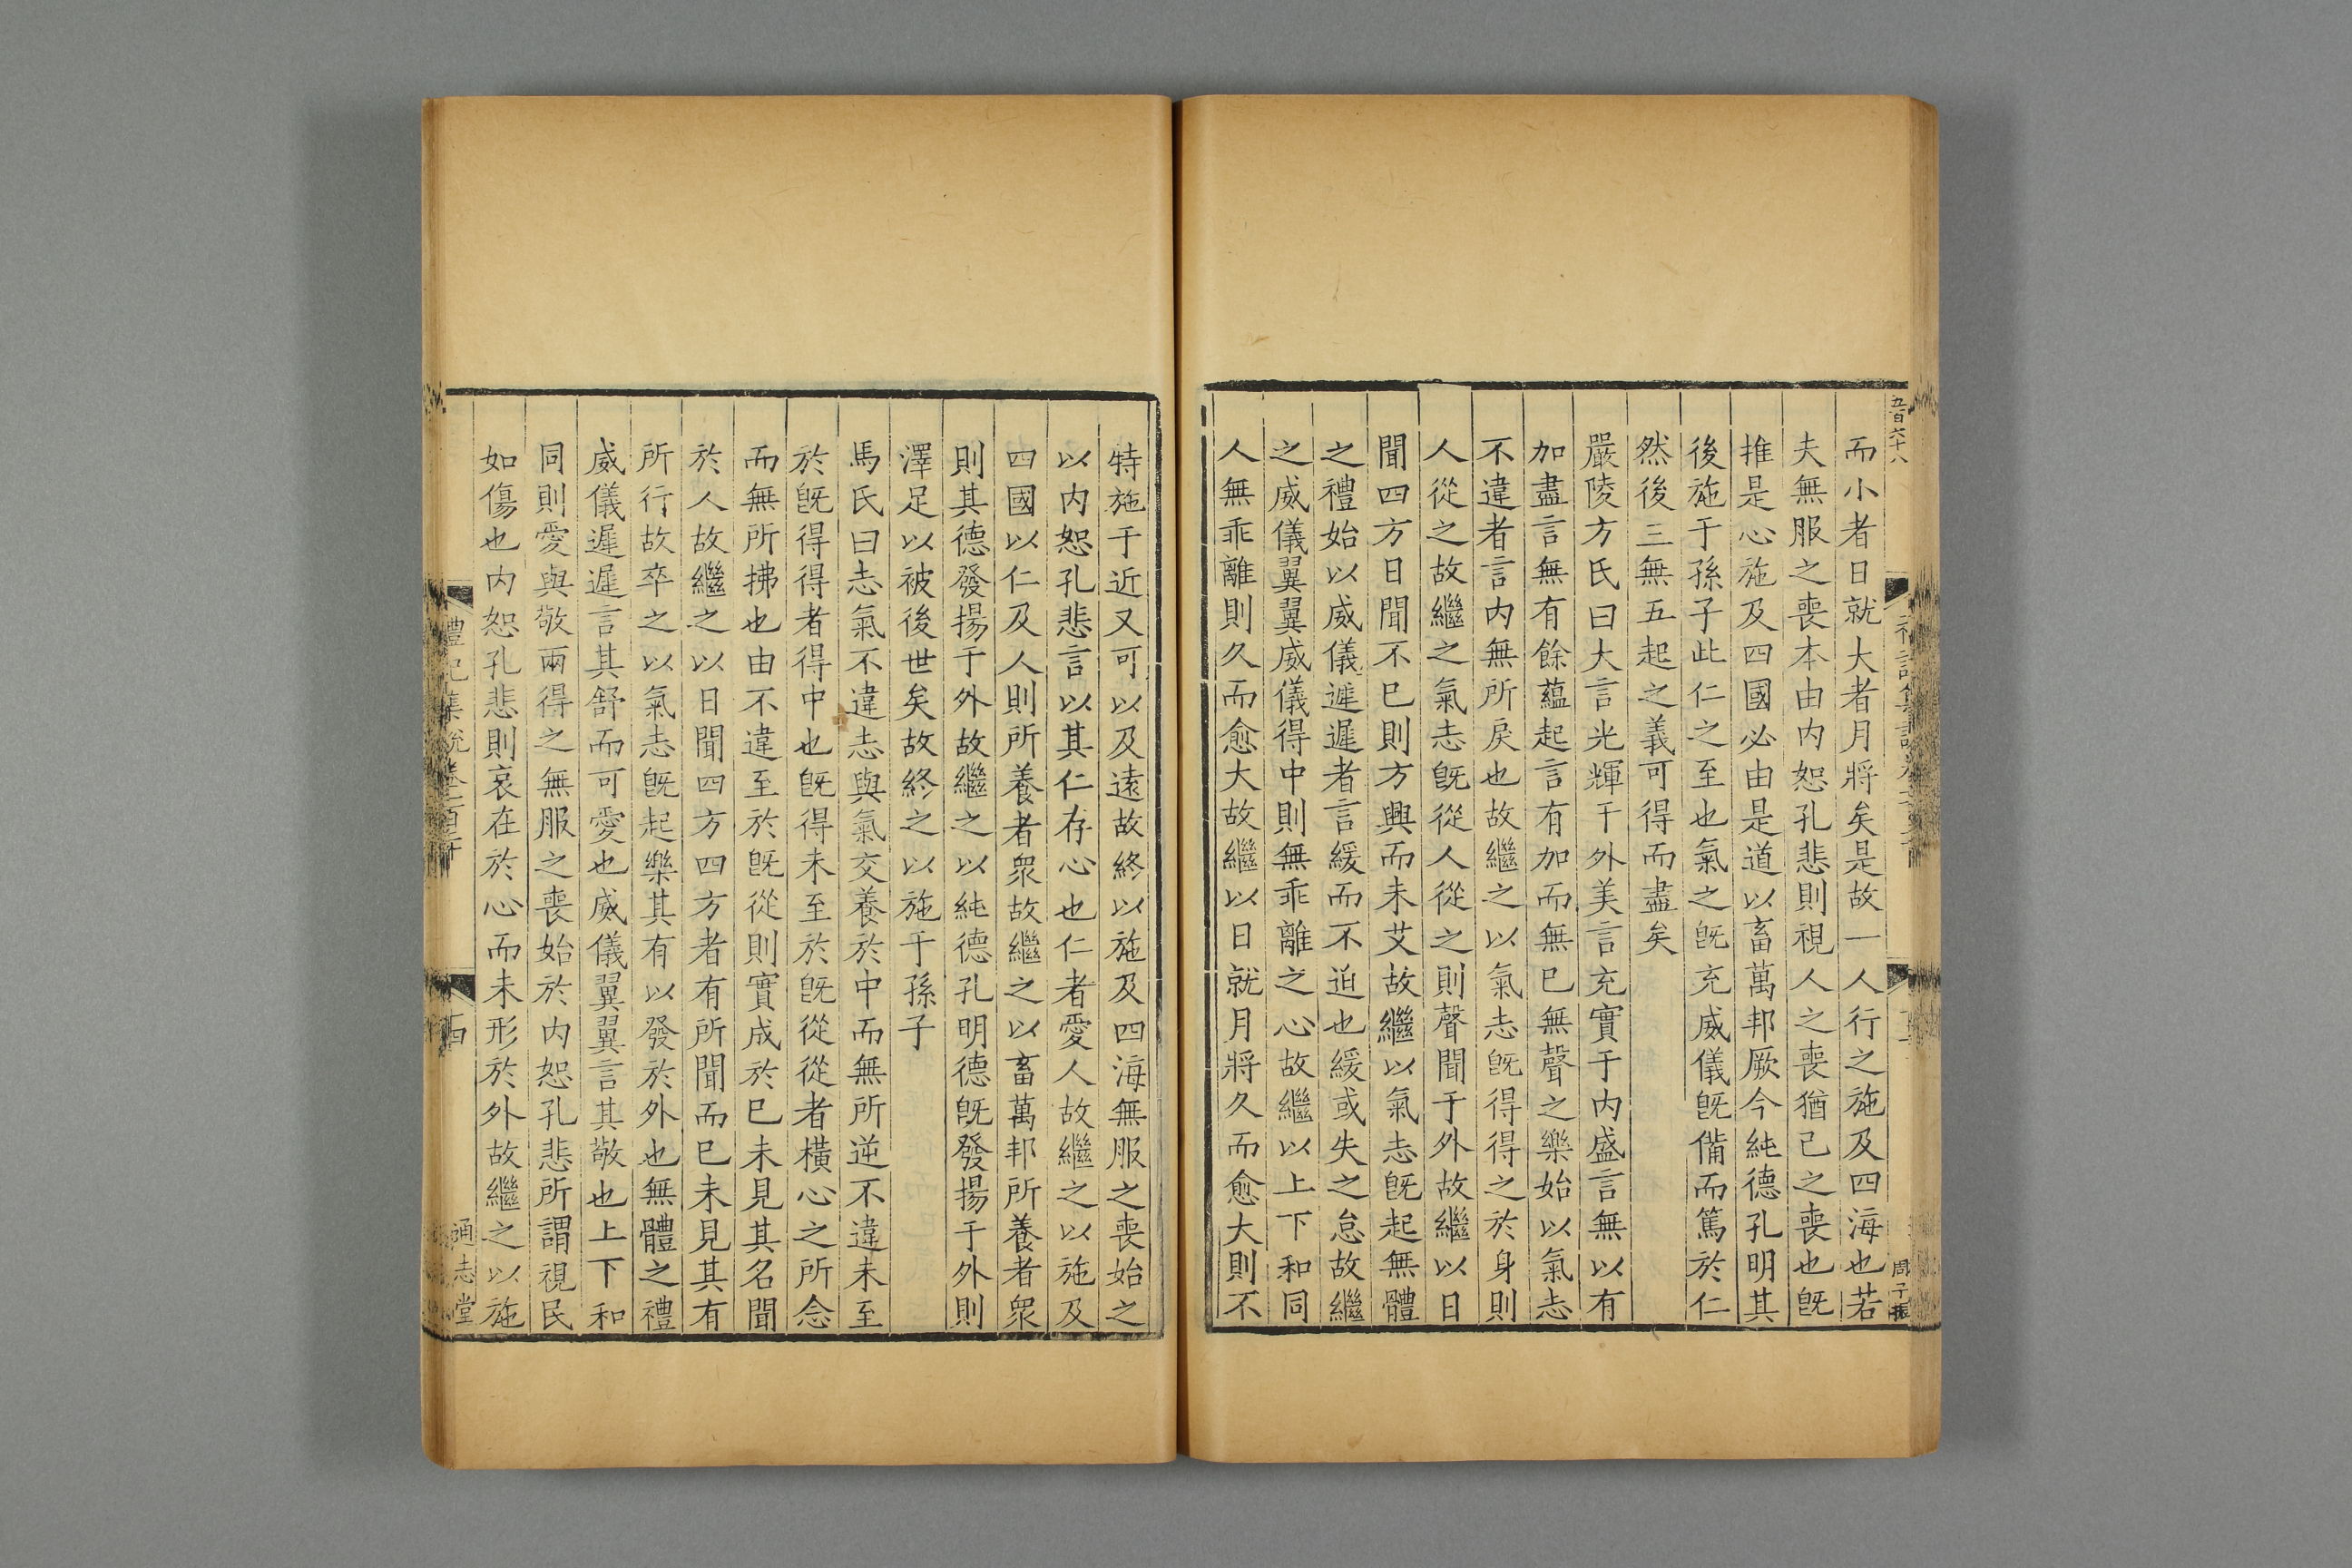 五百六十八
周子振
而小者日就大者月將矣是故一人行之施及四海也若
夫無服之喪本由内恕孔悲則視人之喪猶己之喪也旣
推是心施及四國必由是道以畜萬邦厥今純德孔明其
後施于孫子此仁之至也氣之旣充威儀旣備而篤於仁
然後三無五起之義可得而盡矣
嚴陵方氏曰大言光輝于外美言充實于内盛言無以有
加盡言無有餘蘊起言有加而無已無聲之樂始以氣志
不違者言内無所戾也故繼之以氣志旣得得之於身則
人從之故繼之氣志旣從人從之則聲聞于外故繼以日
聞四方日聞不已則方興而未艾故繼以氣志旣起無體
之禮始以威儀遲遲者言緩而不迫也緩或失之怠故繼
之威儀翼翼威儀得中則無乖離之心故繼以上下和同
人無乖離則久而愈大故繼以日就月將久而愈大則不
特施于近又可以及遠故終以施及四海無服之喪始之
以内恕孔悲言以其仁存心也仁者愛人故繼之以施及
四國以仁及人則所養者衆故繼之以畜萬邦所養者衆
則其德發揚于外故繼之以純德孔明德旣發揚于外則
澤足以被後世矣故終之以施于孫子
馬氏曰志氣不違志與氣交養於中而無所逆不違未至
於旣得得者得中也旣得未至於旣從從者橫心之所念
而無所拂也由不違至於旣從則實成於已未見其名聞
於人故繼之以日聞四方四方者有所聞而已未見其有
所行故卒之以氣志旣起樂其有以發於外也無體之禮
威儀遲遲言其舒而可愛也威儀翼翼言其敬也上下和
同則愛與敬兩得之無服之喪始於内恕孔悲所謂視民
如傷也内恕孔悲則哀在於心而未形於外故繼之以施
禮記集說卷
通志堂